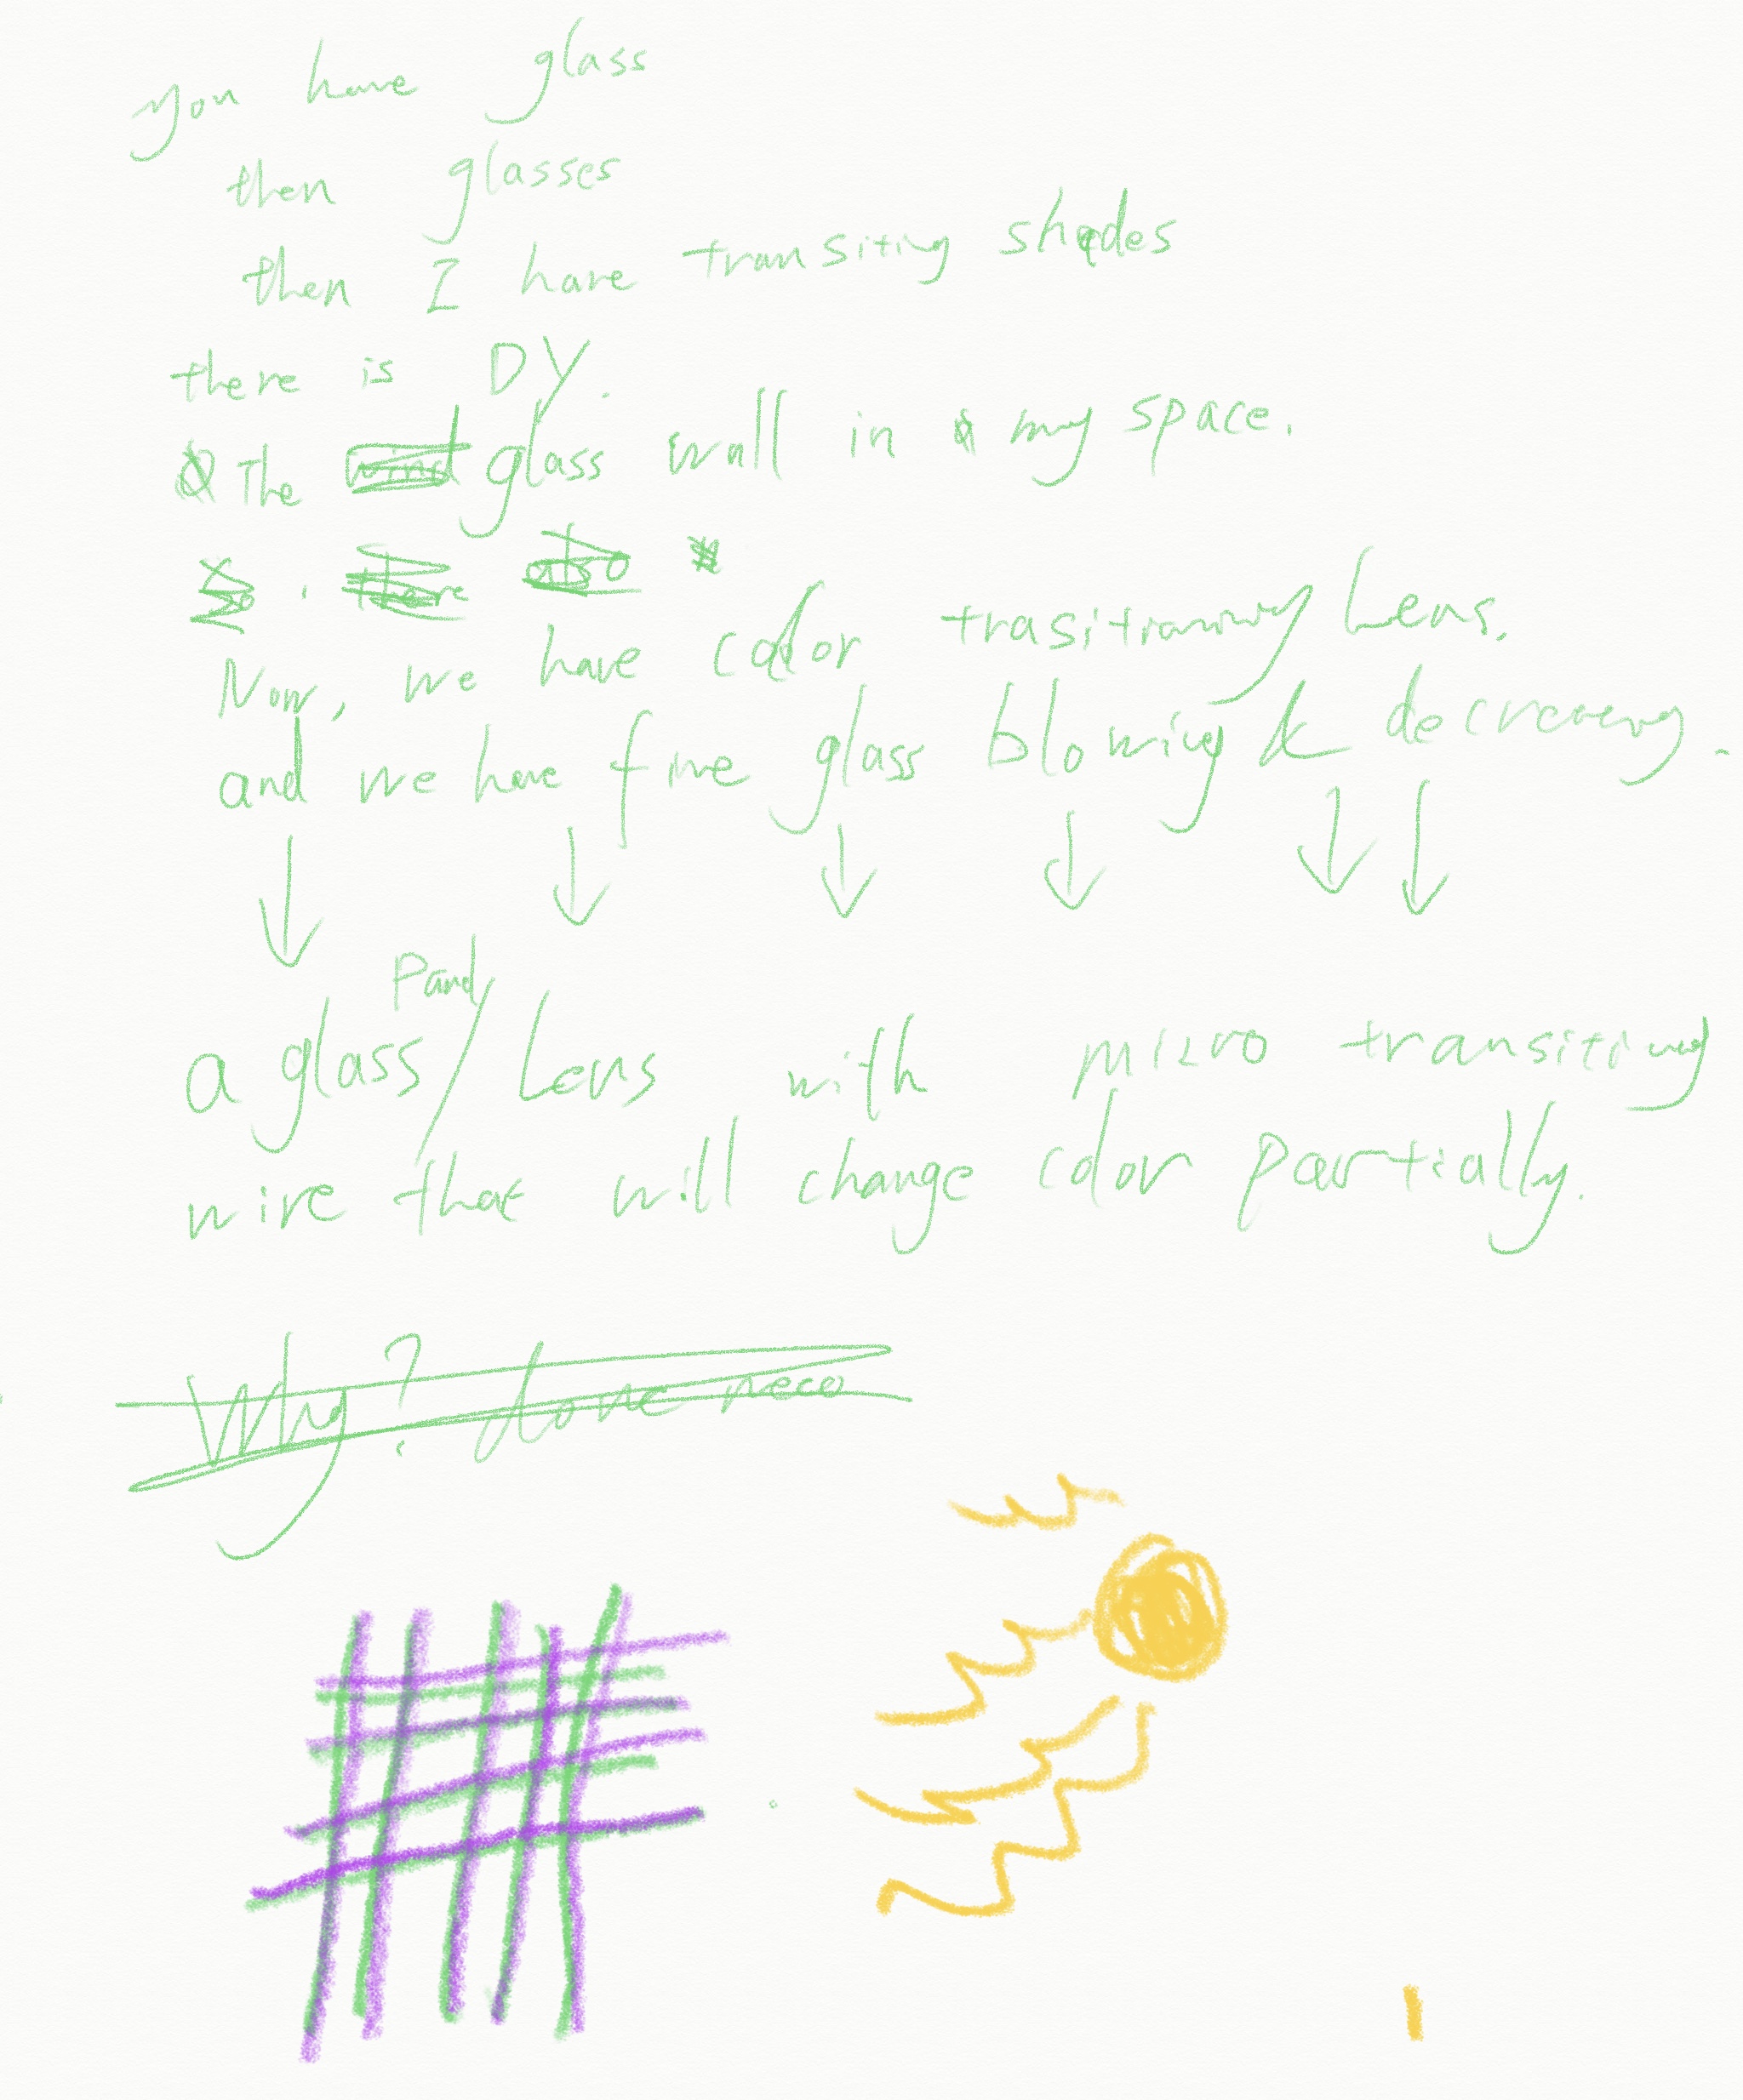 you have glass
then glasses
then I have transiting shades
there is DY.
The glass wall in my space.
Now, we have color trasitioning Lens.
and we have fine glass blowing &
Panel
a glass / Lens with micro transiting
wire that will change color partially.
Why?